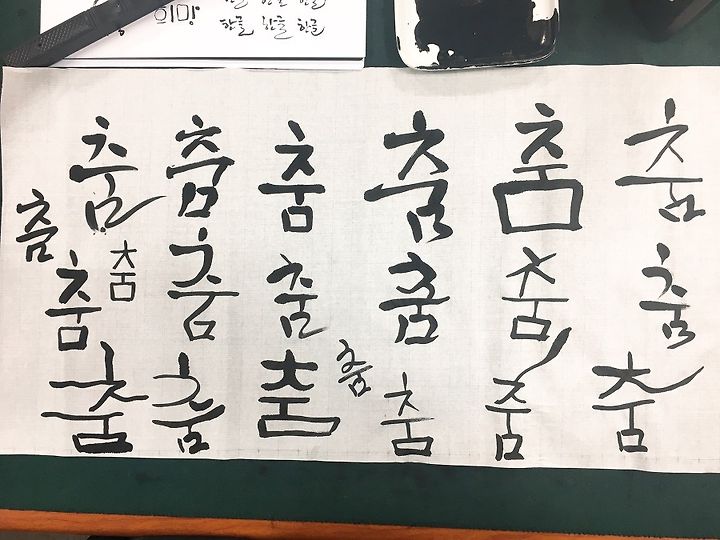 희망
한글 한글 한글
춤 춤 춤 춤 춤 춤
춤
춤 춤 춤 춤 춤 춤 춤
춤 춤 춤 춤 춤 춤 춤